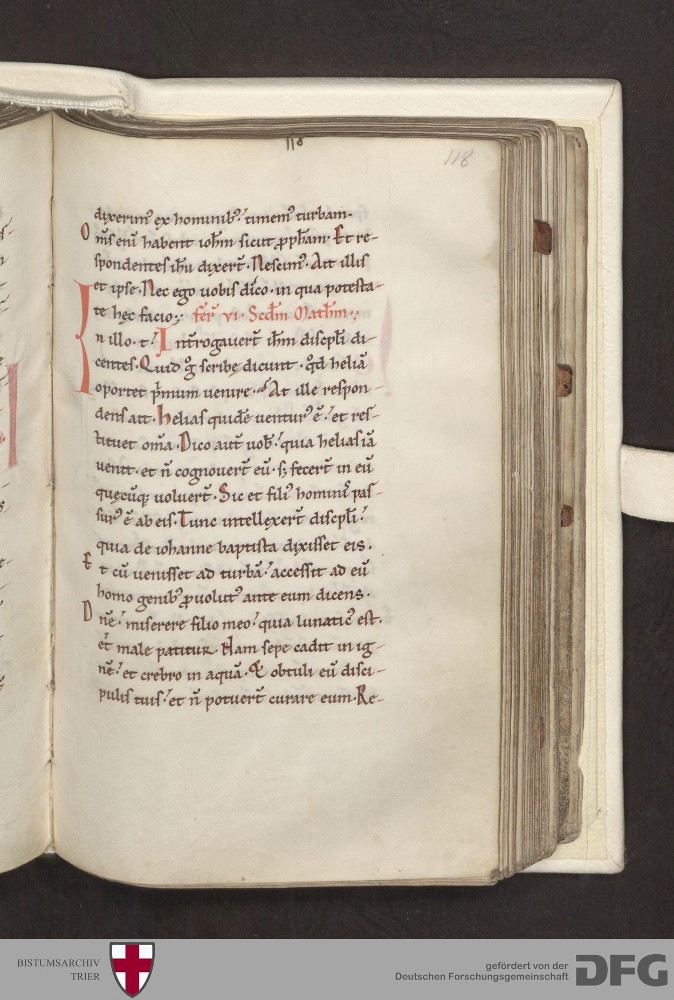 118
118
dixerim᷒ ex hominib᷒? timem᷒ turbam.
Om̄s eni᷒ habent ioh̄m sicut ꝓph̄am. Et re-
spondentes ih̄u dixer̄t. Nescim᷒. Ait illis
et ipse. Nec ego uobis dico. in qua potesta-
te hęc facio; fer̄ vi. Scd̄m Math̄m.
In illo. t? Introgauer̄t ih̄m discpl̄i di-
centes. Quid g̊ scribę dicunt. qd̄ heliā
oportet p̄mum uenire. At ille respon-
dens ait. Helias quidē uentur᷒ ē? et res-
tituet om̄a. Dico aut̄ uob̄? quia helias iā
uenit. et n̄ cognouer̄t eū. s; fecer̄t in eū
quęcūq; uoluer̄t. Sic et fili᷒ homini᷒ pas-
sur᷒ ē ab eis. Tunc intellexer̄t discpl̄i?
quia de iohanne baptista dixisset eis.
Et cū uenisset ad turbā? accessit ad eū
homo genib᷒ ꝓuolut᷒ ante eum dicens.
Dn̄e? miserere filio meo? quia lunatic᷒ est.
et male patitur. Nam sepe cadit in ig-
nē? et crebro in aquā. & obtuli eū disci-
pulis tuis? et n̄ potuer̄t curare eum. Re-
BISTUMSARCHIV
TRIER
gefördert von der
Deutschen Forschungsgemeinschaft
DFG